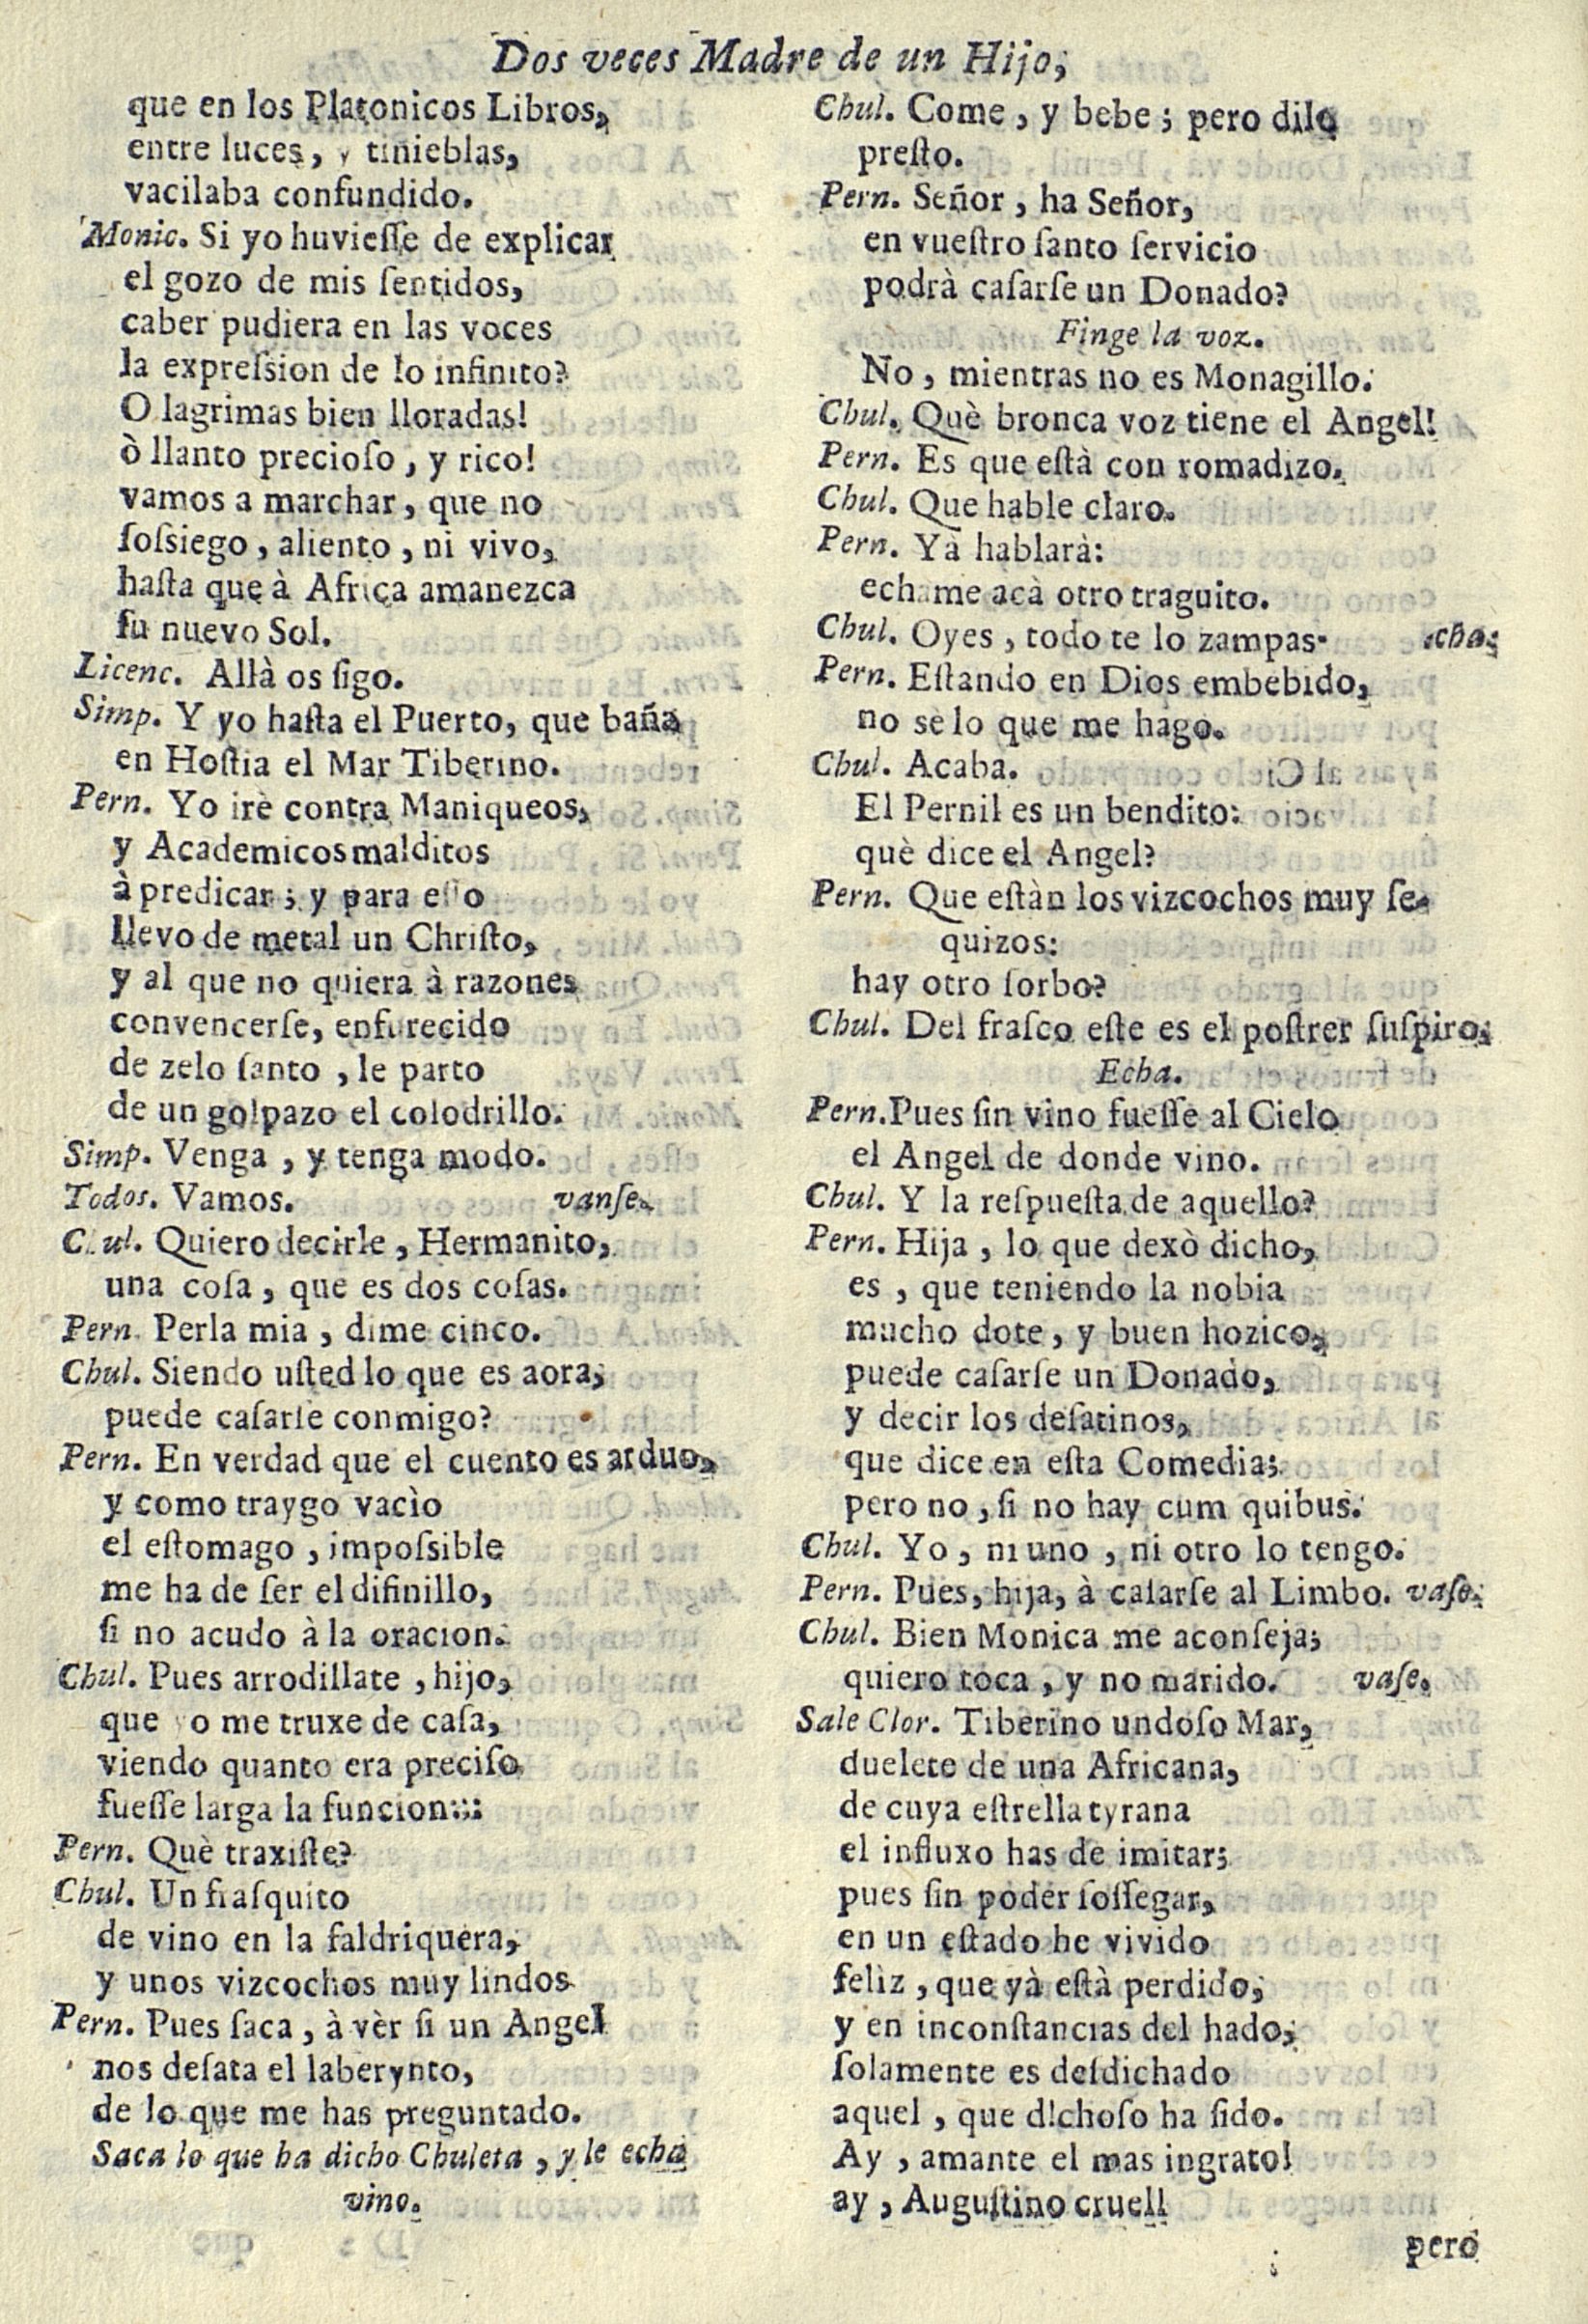 Dos veces Madre de un Hijo,
que en los Platonicos Libros,
entre luces, y tinieblas,
vacilaba confundido.
Monic. Si yo huvieſſe de explicar
el gozo de mis ſentidos,
caber pudiera en las voces
la expreſsion de lo infinito?
O lagrimas bien lloradas!
ò llanto precioſo, y rico!
vamos a marchar, que no
ſoſsiego, aliento, ni vivo,
haſta que à Africa amanezca
ſu nuevo Sol.
Licenc. Allà os ſigo.
Simp. Y yo haſta el Puerto, que baña
en Hoſtia el Mar Tiberino.
Pern. Yo irè contra Maniqueos,
y Academicos malditos
à predicar; y para eſſo
llevo de metal un Chriſto,
y al que no quiera à razones
convencerſe, enfurecido
de zelo ſanto, le parto
de un golpazo el colodrillo.
Simp. Venga, y tenga modo.
Todos. Vamos. vanſe.
Chul. Quiero decirle, Hermanito,
una coſa, que es dos coſas.
Pern. Perla mia, dime cinco.
Chul. Siendo uſted lo que es aora,
puede caſarſe conmigo?
Pern. En verdad que el cuento es arduo,
y como traygo vacìo
el eſtomago, impoſsible
me ha de ſer el difinillo,
ſi no acudo à la oracion.
Chul. Pues arrodillate, hijo,
que yo me truxe de caſa,
viendo quanto era preciſo
fueſſe larga la funcion:::
Pern. Què traxiſte?
Chul. Un fraſquito
de vino en la faldriquera,
y unos vizcochos muy lindos.
Pern. Pues ſaca, à vèr ſi un Angel
nos deſata el laberynto,
de lo que me has preguntado.
Saca lo que ha dicho Chuleta, y le echa
vino.
Chul. Come, y bebe; pero dilo
preſto.
Pern. Señor, ha Señor,
en vueſtro ſanto ſervicio
podrà caſarſe un Donado?
Finge la voz.
No, mientras no es Monagillo.
Chul. Què bronca voz tiene el Angel!
Pern. Es que eſtà con romadizo.
Chul. Que hable claro.
Pern. Yà hablarà:
echame acà otro traguito.
Chul. Oyes, todo te lo zampas. echa.
Pern. Eſtando en Dios embebido,
no sè lo que me hago.
Chul. Acaba.
El Pernil es un bendito:
què dice el Angel?
Pern. Que eſtàn los vizcochos muy ſe-
quizos:
hay otro ſorbo?
Chul. Del fraſco eſte es el poſtrer ſuſpiro.
Echa.
Pern. Pues ſin vino fueſſe al Cielo
el Angel de donde vino.
Chul. Y la reſpueſta de aquello?
Pern. Hija, lo que dexò dicho,
es, que teniendo la nobia
mucho dote, y buen hozico,
puede caſarſe un Donado,
y decir los deſatinos,
que dice en eſta Comedia;
pero no, ſi no hay cum quibus.
Chul. Yo, ni uno, ni otro lo tengo.
Pern. Pues, hija, à caſarſe al Limbo. vaſe.
Chul. Bien Monica me aconſeja;
quiero toca, y no marido. vaſe.
Sale Clor. Tiberino undoſo Mar,
duelete de una Africana,
de cuya eſtrella tyrana
el influxo has de imitar;
pues ſin poder ſoſſegar,
en un eſtado he vivido
feliz, que yà eſtà perdido,
y en inconſtancias del hado,
ſolamente es deſdichado
aquel, que dichoſo ha ſido.
Ay, amante el mas ingrato!
ay, Auguſtino cruel!
pero